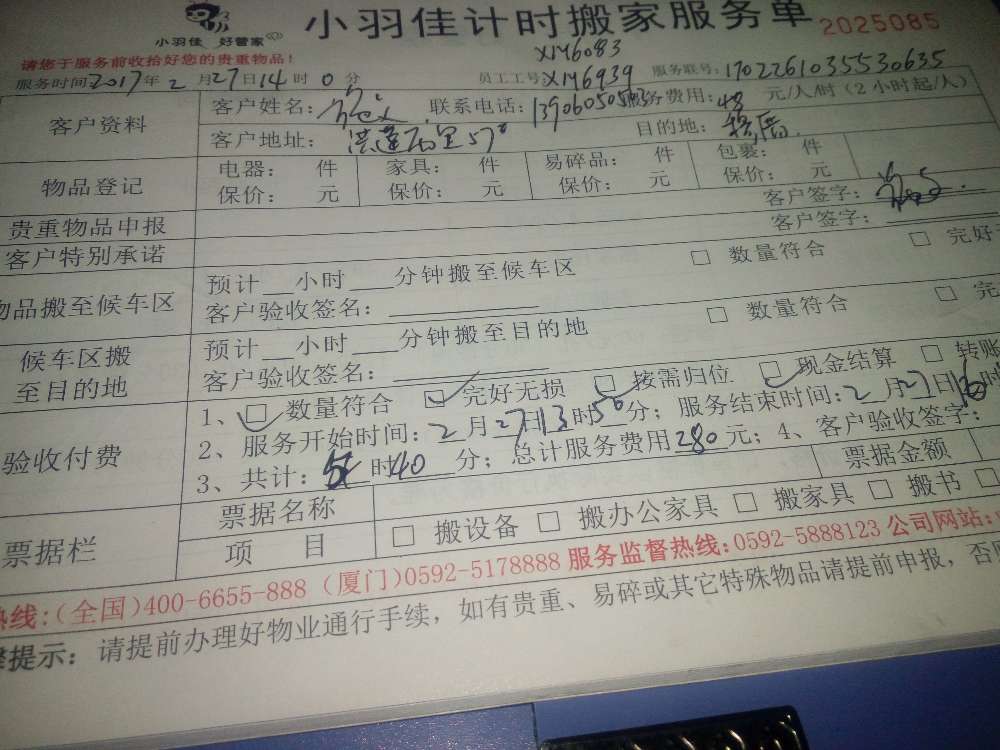 小羽佳计时搬家服务单 2025085
小羽佳 好管家
请您于服务前收拾好您的贵重物品!
XM6083
服务时间2017年2月27日14时0分 员工工号XM6939 服务联号:1702261035530635
客户资料 客户姓名: 联系电话: 服务费用:48元/人/时(2小时起/人)
客户地址: 莲石里57# 目的地:
物品登记 电器: 件 家具: 件 易碎品: 件 包裹: 件
保价: 元 保价: 元 保价: 元 保价: 元
贵重物品申报 客户签字:
客户特别承诺 客户签字:
物品搬至候车区 预计__小时___分钟搬至候车区 □ 数量符合 □ 完好
客户验收签名:
候车区搬至目的地 预计__小时___分钟搬至目的地 □ 数量符合 □ 完
客户验收签名:
验收付费 1、☑ 数量符合 ☑ 完好无损 ☑ 按需归位 ☑ 现金结算 □ 转账
2、服务开始时间:2月27日13时50分;服务结束时间:2月27日16时
3、共计:时40分;总计服务费用280元;4、客户验收签字:
票据栏 票据名称 票据金额
项 目 □ 搬设备 □ 搬办公家具 □ 搬家具 □ 搬书 □
热线:(全国)400-6655-888 (厦门)0592-5178888 服务监督热线:0592-5888123 公司网站:
提示: 请提前办理好物业通行手续,如有贵重、易碎或其它特殊物品请提前申报,否则